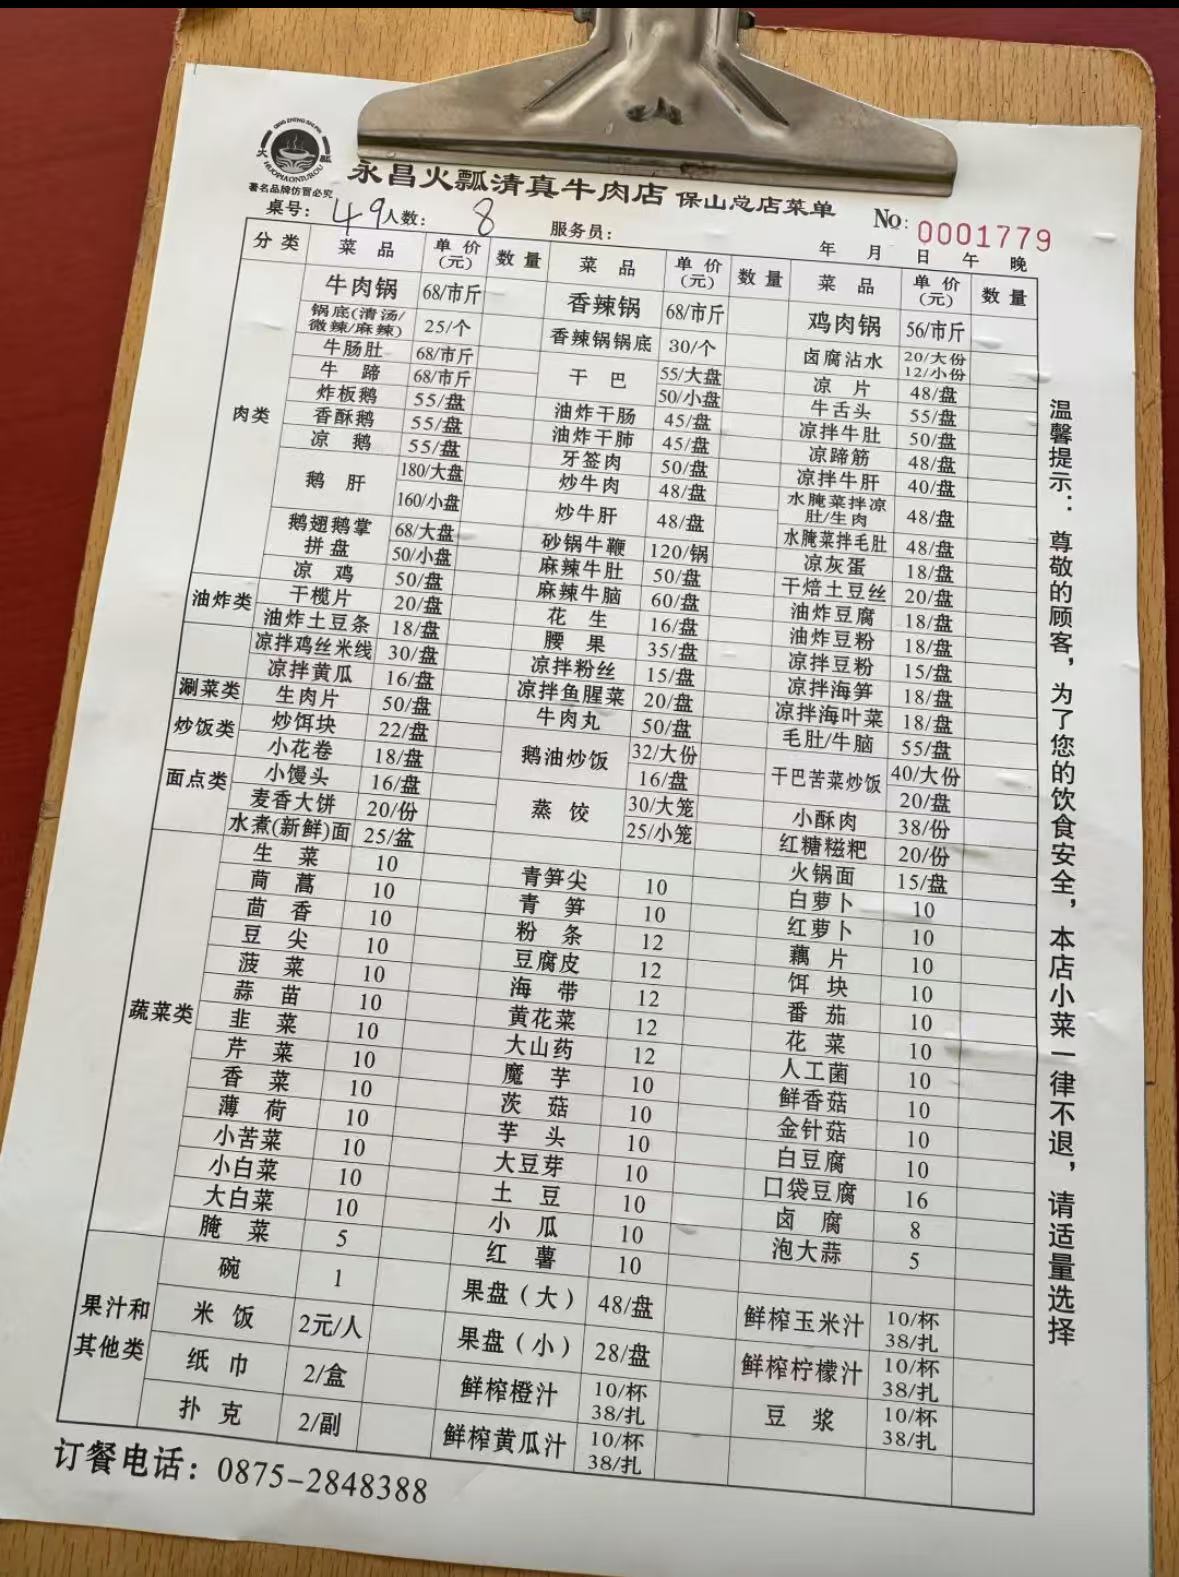 QING ZHENG SHI PIN
火 瓢
HUOPIAONIUROU
著名品牌仿冒必究
永昌火瓢清真牛肉店 保山总店菜单
No: 0001779
桌号: 49 人数: 8 服务员: 年 月 日 午 晚
分类 菜品 单价(元) 数量 菜品 单价(元) 数量 菜品 单价(元) 数量
肉类
牛肉锅 68/市斤 香辣锅 68/市斤 鸡肉锅 56/市斤
锅底(清汤/微辣/麻辣) 25/个 香辣锅锅底 30/个 卤腐沾水 20/大份 12/小份
牛肠肚 68/市斤 干巴 55/大盘 50/小盘 凉片 48/盘
牛蹄 68/市斤 牛舌头 55/盘
炸板鹅 55/盘 油炸干肠 45/盘 凉拌牛肚 50/盘
香酥鹅 55/盘 油炸干肺 45/盘 凉蹄筋 48/盘
凉鹅 55/盘 牙签肉 50/盘 凉拌牛肝 40/盘
鹅肝 180/大盘 160/小盘 炒牛肉 48/盘 水腌菜拌凉肚/生肉 48/盘
炒牛肝 48/盘 水腌菜拌毛肚 48/盘
鹅翅鹅掌拼盘 68/大盘 50/小盘 砂锅牛鞭 120/锅 凉灰蛋 18/盘
凉鸡 50/盘 麻辣牛肚 50/盘 干焙土豆丝 20/盘
油炸类
干榄片 20/盘 麻辣牛脑 60/盘 油炸豆腐 18/盘
油炸土豆条 18/盘 花生 16/盘 油炸豆粉 18/盘
凉拌鸡丝米线 30/盘 腰果 35/盘 凉拌豆粉 15/盘
凉拌黄瓜 16/盘 凉拌粉丝 15/盘 凉拌海笋 18/盘
涮菜类
生肉片 50/盘 凉拌鱼腥菜 20/盘 凉拌海叶菜 18/盘
炒饭类
炒饵块 22/盘 牛肉丸 50/盘 毛肚/牛脑 55/盘
小花卷 18/盘 鹅油炒饭 32/大份 16/盘 干巴苦菜炒饭 40/大份 20/盘
面点类
小馒头 16/盘 蒸饺 30/大笼 25/小笼 小酥肉 38/份
麦香大饼 20/份 红糖糍粑 20/份
水煮(新鲜)面 25/盆 火锅面 15/盘
蔬菜类
生菜 10 青笋尖 10 白萝卜 10
茼蒿 10 青笋 10 红萝卜 10
茴香 10 粉条 12 藕片 10
豆尖 10 豆腐皮 12 饵块 10
菠菜 10 海带 12 番茄 10
蒜苗 10 黄花菜 12 花菜 10
韭菜 10 大山药 12 人工菌 10
芹菜 10 魔芋 10 鲜香菇 10
香菜 10 茨菇 10 金针菇 10
薄荷 10 芋头 10 白豆腐 10
小苦菜 10 大豆芽 10 口袋豆腐 16
小白菜 10 土豆 10 卤腐 8
大白菜 10 小瓜 10 泡大蒜 5
腌菜 5 红薯 10
果汁和其他类
碗 1 果盘(大) 48/盘 鲜榨玉米汁 10/杯 38/扎
米饭 2元/人 果盘(小) 28/盘 鲜榨柠檬汁 10/杯 38/扎
纸巾 2/盒 鲜榨橙汁 10/杯 38/扎 豆浆 10/杯 38/扎
扑克 2/副 鲜榨黄瓜汁 10/杯 38/扎
订餐电话: 0875-2848388
温馨提示: 尊敬的顾客, 为了您的饮食安全, 本店小菜一律不退, 请适量选择